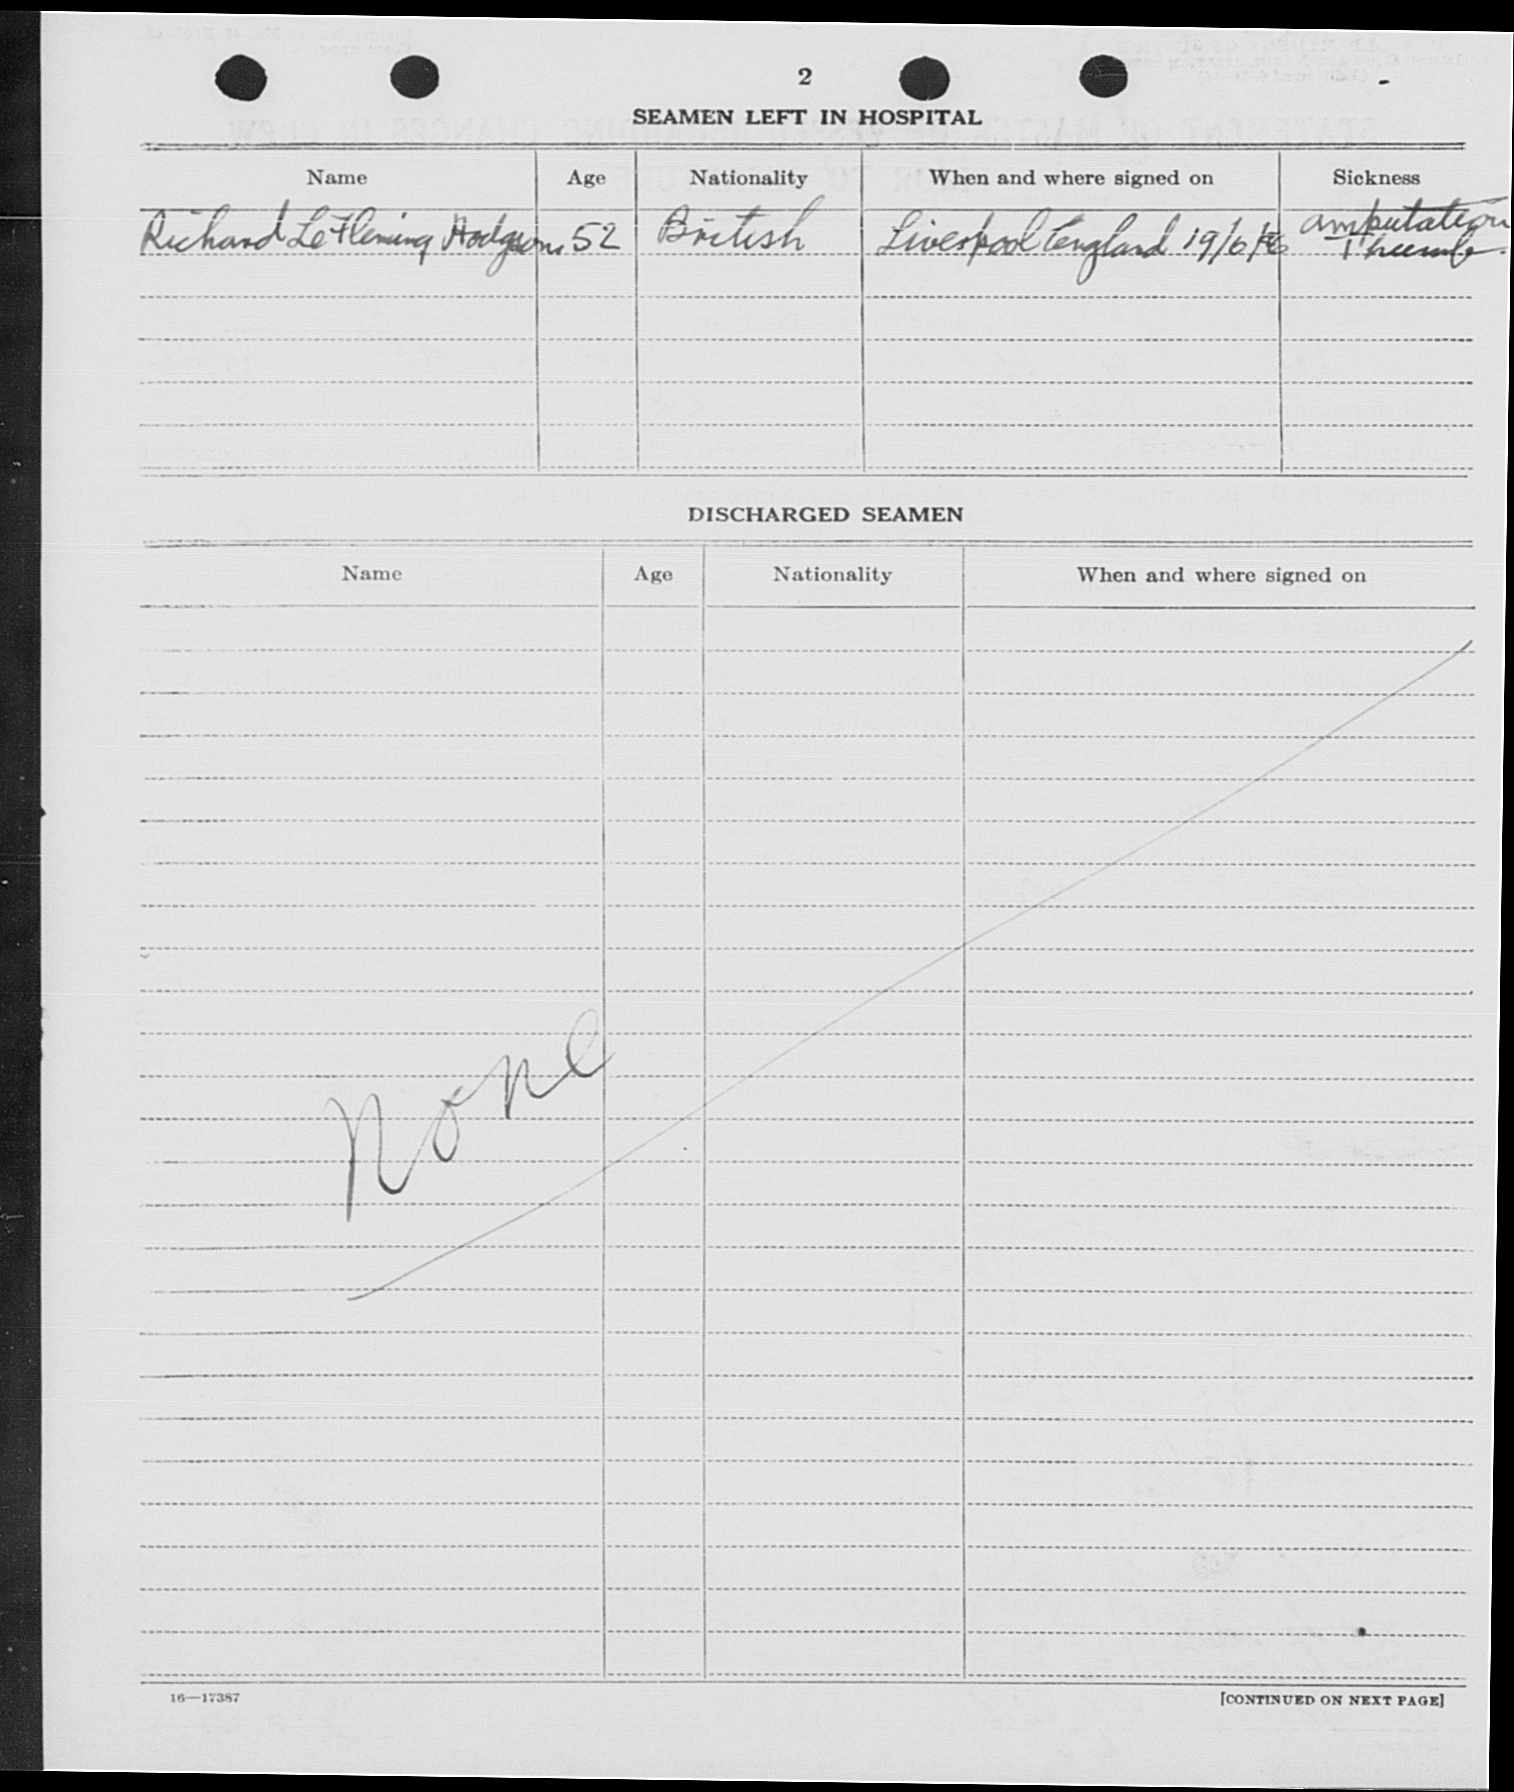 2
SEAMEN LEFT IN HOSPITAL
Name Age Nationality When and where signed on Sickness
Richard Le Fleming Hodgson 52 British Liverpool England 19/6/ amputation
Thumb.
DISCHARGED SEAMEN
Name Age Nationality When and where signed on
None
16—17387 [CONTINUED ON NEXT PAGE]